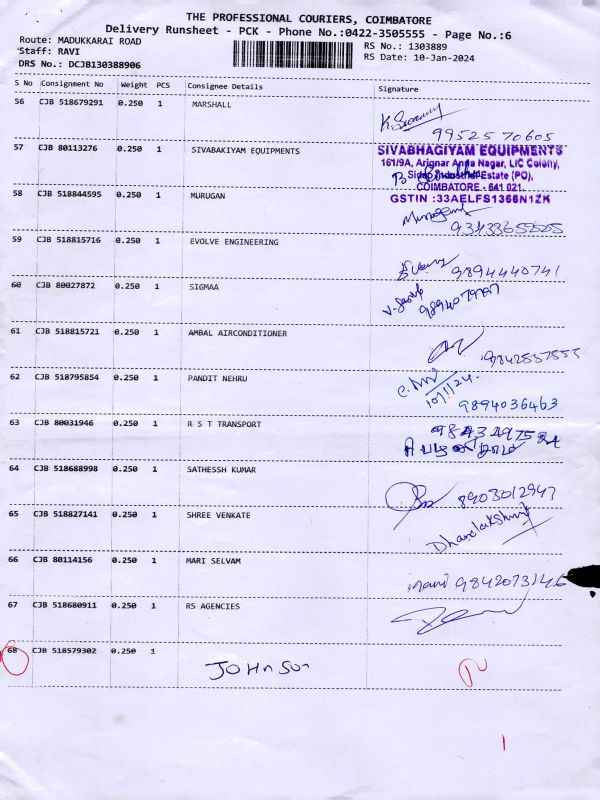 THE PROFESSIONAL COURIERS, COIMBATORE
Delivery Runsheet - PCK - Phone No.:0422-3505555 - Page No.:6
Route: MADUKKARAI ROAD
Staff: RAVI
DRS No.: DCJB130388906
RS No.: 1303889
RS Date: 10-Jan-2024
S No Consignment No Weight PCS Consignee Details Signature
56 CJB 518679291 0.250 1 MARSHALL
99525 70605
57 CJB 80113276 0.250 1 SIVABAKIYAM EQUIPMENTS
SIVABHAGIYAM EQUIPMENTS
161/9A, Arignar Anna Nagar, LIC Colony,
Sidco Industrial Estate (PO),
COIMBATORE - 641 021.
GSTIN :33AELFS1366N1ZK
58 CJB 518844595 0.250 1 MURUGAN
Murugan
59 CJB 518815716 0.250 1 EVOLVE ENGINEERING
9894440741
60 CJB 80027872 0.250 1 SIGMAA
61 CJB 518815721 0.250 1 AMBAL AIRCONDITIONER
9842557555
62 CJB 518795854 0.250 1 PANDIT NEHRU
10/1/24.
9894036463
63 CJB 80031946 0.250 1 R S T TRANSPORT
64 CJB 518688998 0.250 1 SATHESSH KUMAR
8903012947
65 CJB 518827141 0.250 1 SHREE VENKATE
Dhanalakshmi
66 CJB 80114156 0.250 1 MARI SELVAM
mani 9842073146
67 CJB 518680911 0.250 1 RS AGENCIES
68 CJB 518579302 0.250 1
JOHnSon